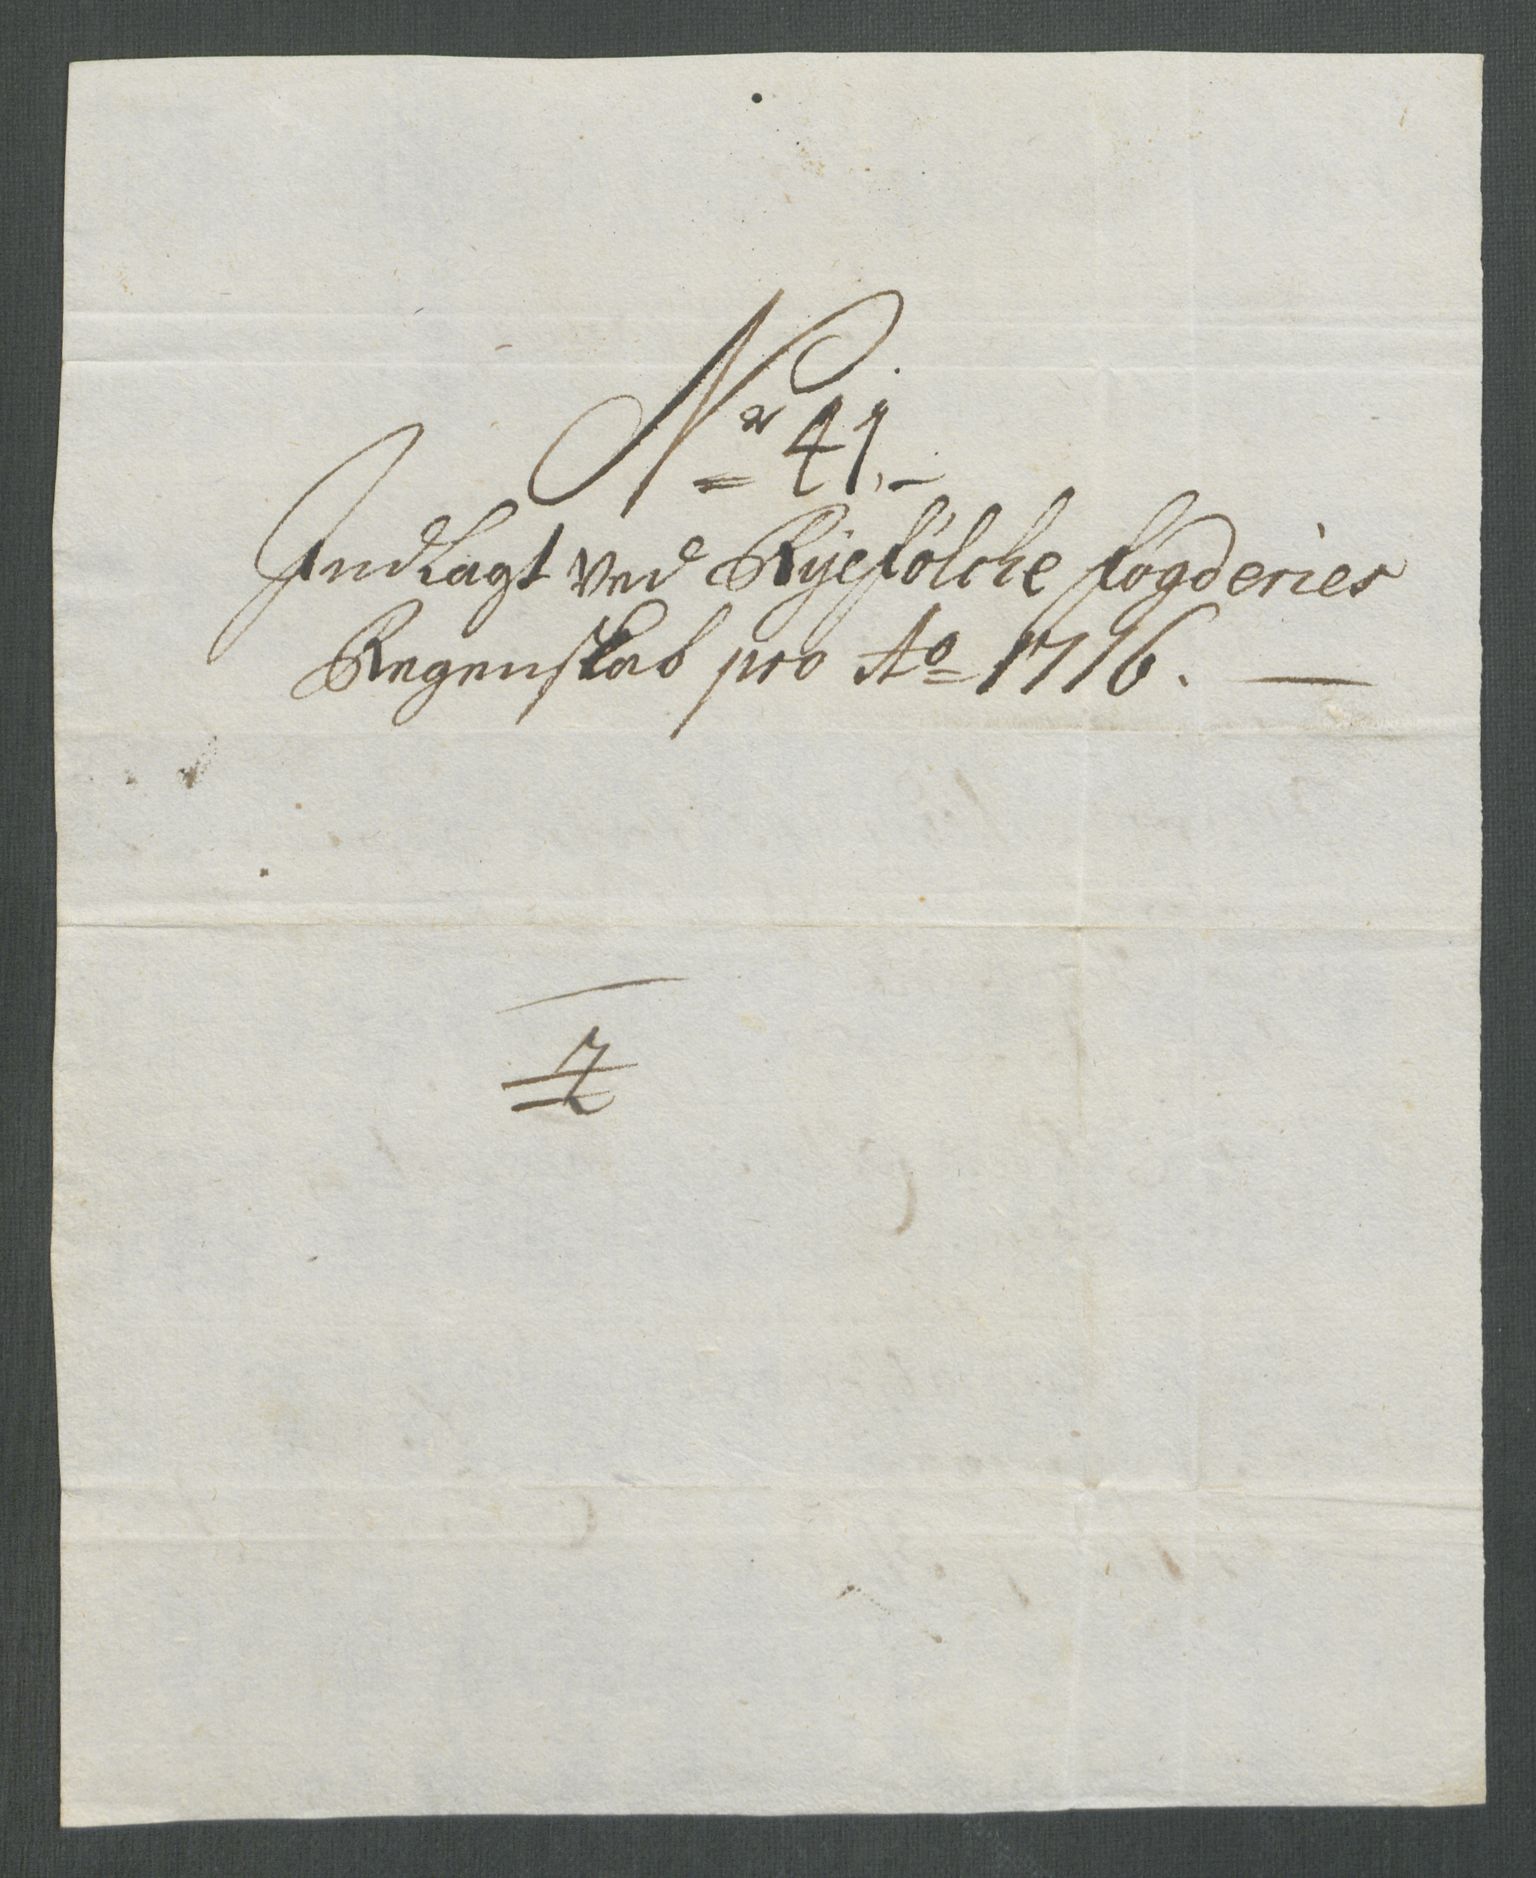 Nr 41.
Indlagt ved Ryefölche fogderies
Regenskab pro Ao 1716.